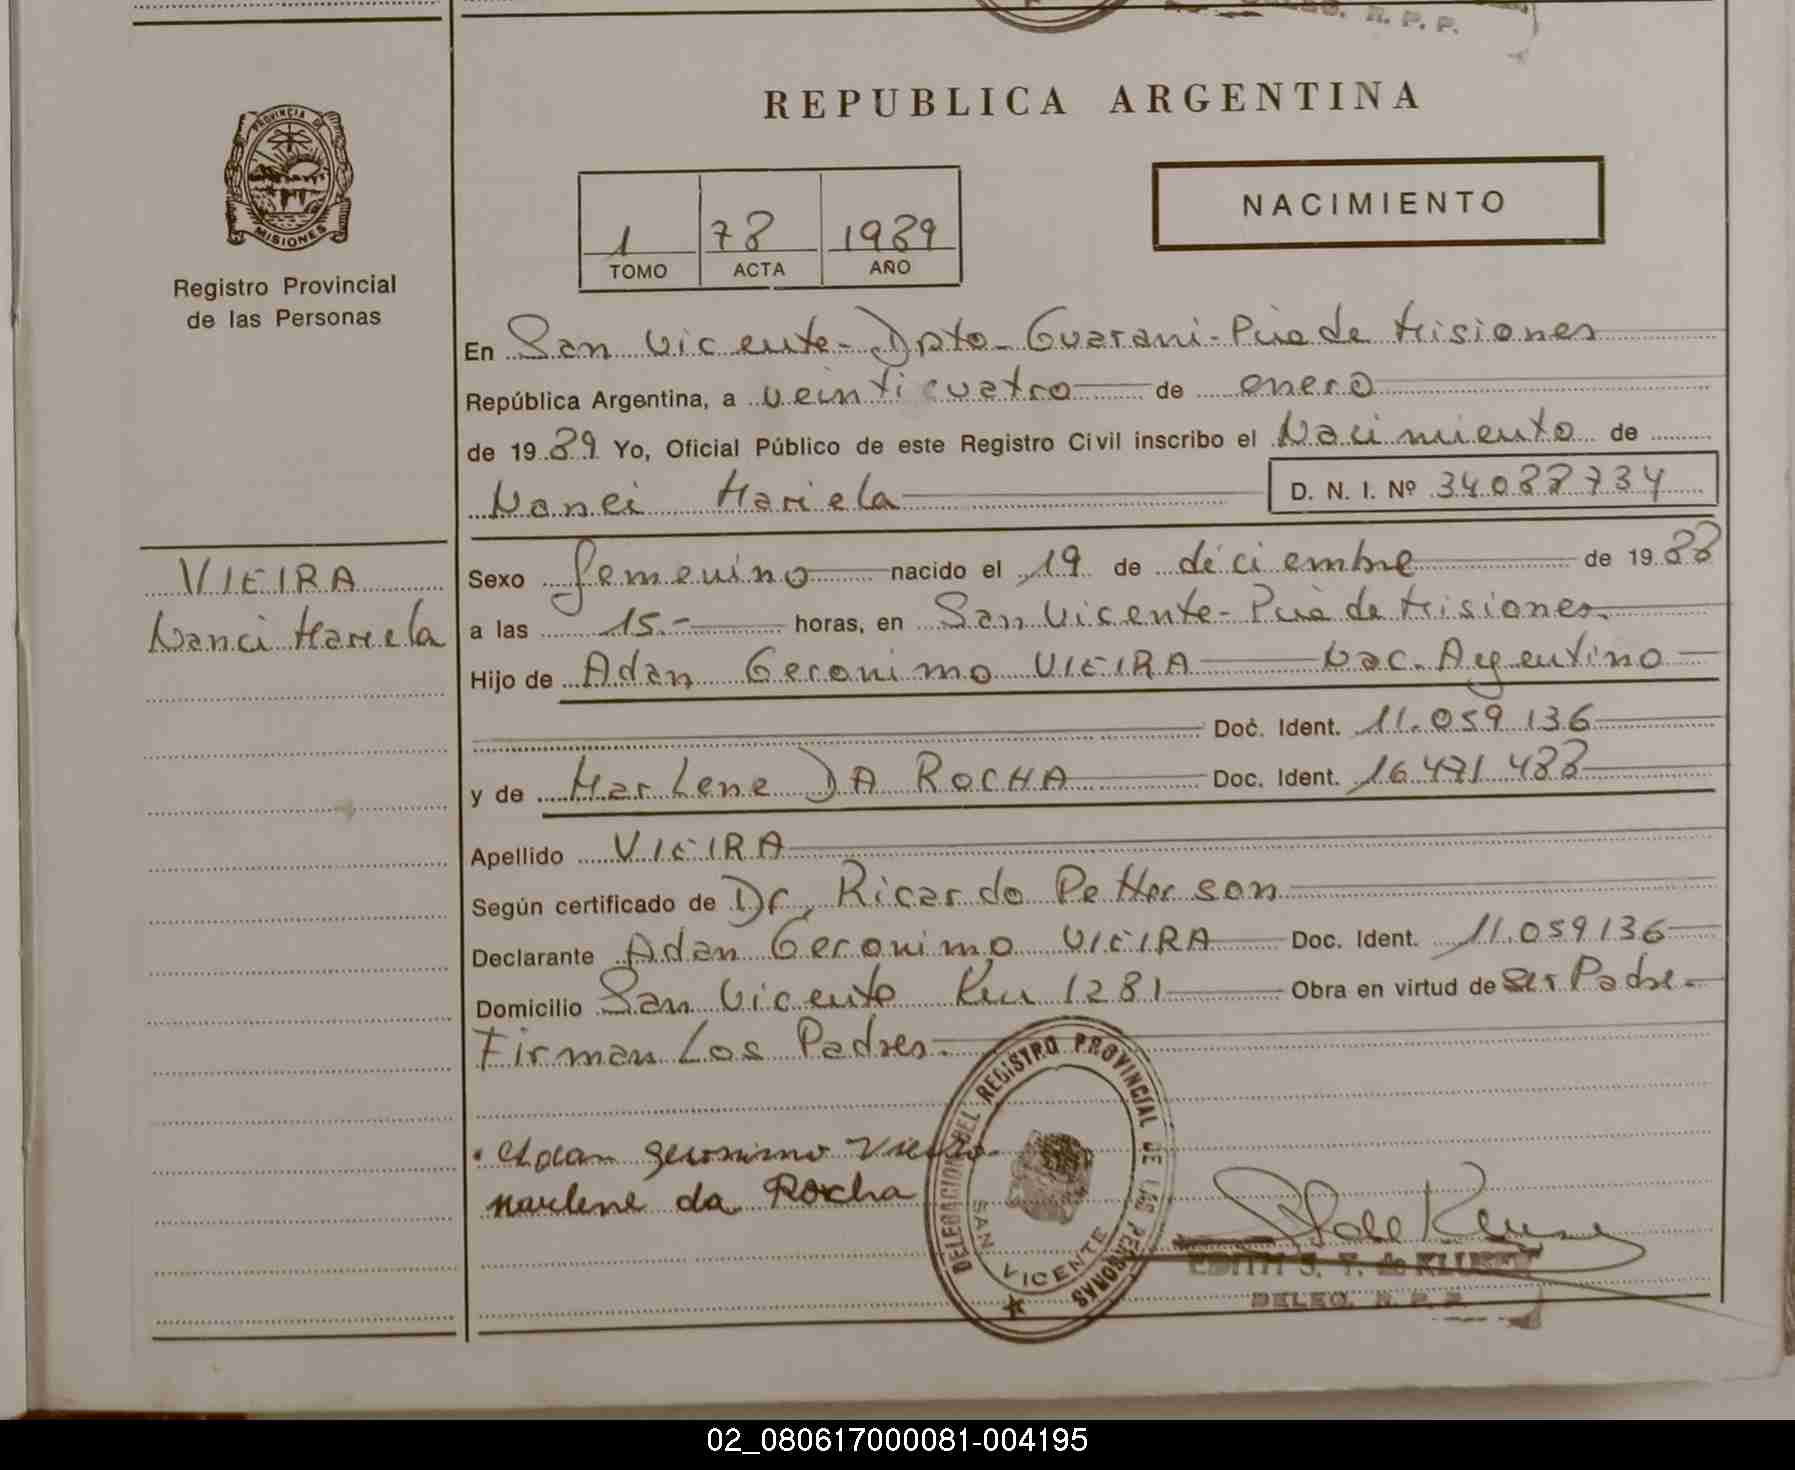 R. P. P.
REPUBLICA ARGENTINA
PROVINCIA DE
MISIONES
Registro Provincial
de las Personas
NACIMIENTO
1 78 1989
TOMO ACTA AÑO
En San Vicente - Dpto - Guarani - Pcia de Misiones
República Argentina, a veinticuatro de enero
de 1989 Yo, Oficial Público de este Registro Civil inscribo el Nacimiento de
Nanci Mariela D. N. I. Nº 34088734
VIEIRA
Nanci Mariela
Sexo femenino nacido el 19 de diciembre de 1988
a las 15.- horas, en San Vicente - Pcia de Misiones.
Hijo de Adan Geronimo VIEIRA Nac. Argentino
Doc. Ident. 11.059.136
y de Marlene DA ROCHA Doc. Ident. 16.471.488
Apellido VIEIRA
Según certificado de Dr, Ricardo Petterson
Declarante Adan Geronimo VIEIRA Doc. Ident. 11.059136
Domicilio San Vicente Km 1281 Obra en virtud de ser Padre.
Firman Los Padres.
Adan geronimo Vieira
marlene da Rocha
DELEGACION DEL REGISTRO PROVINCIAL DE LAS PERSONAS
SAN VICENTE
EDITH S. T. de KLUSEN
DELEG. R. P. P.
02_080617000081-004195